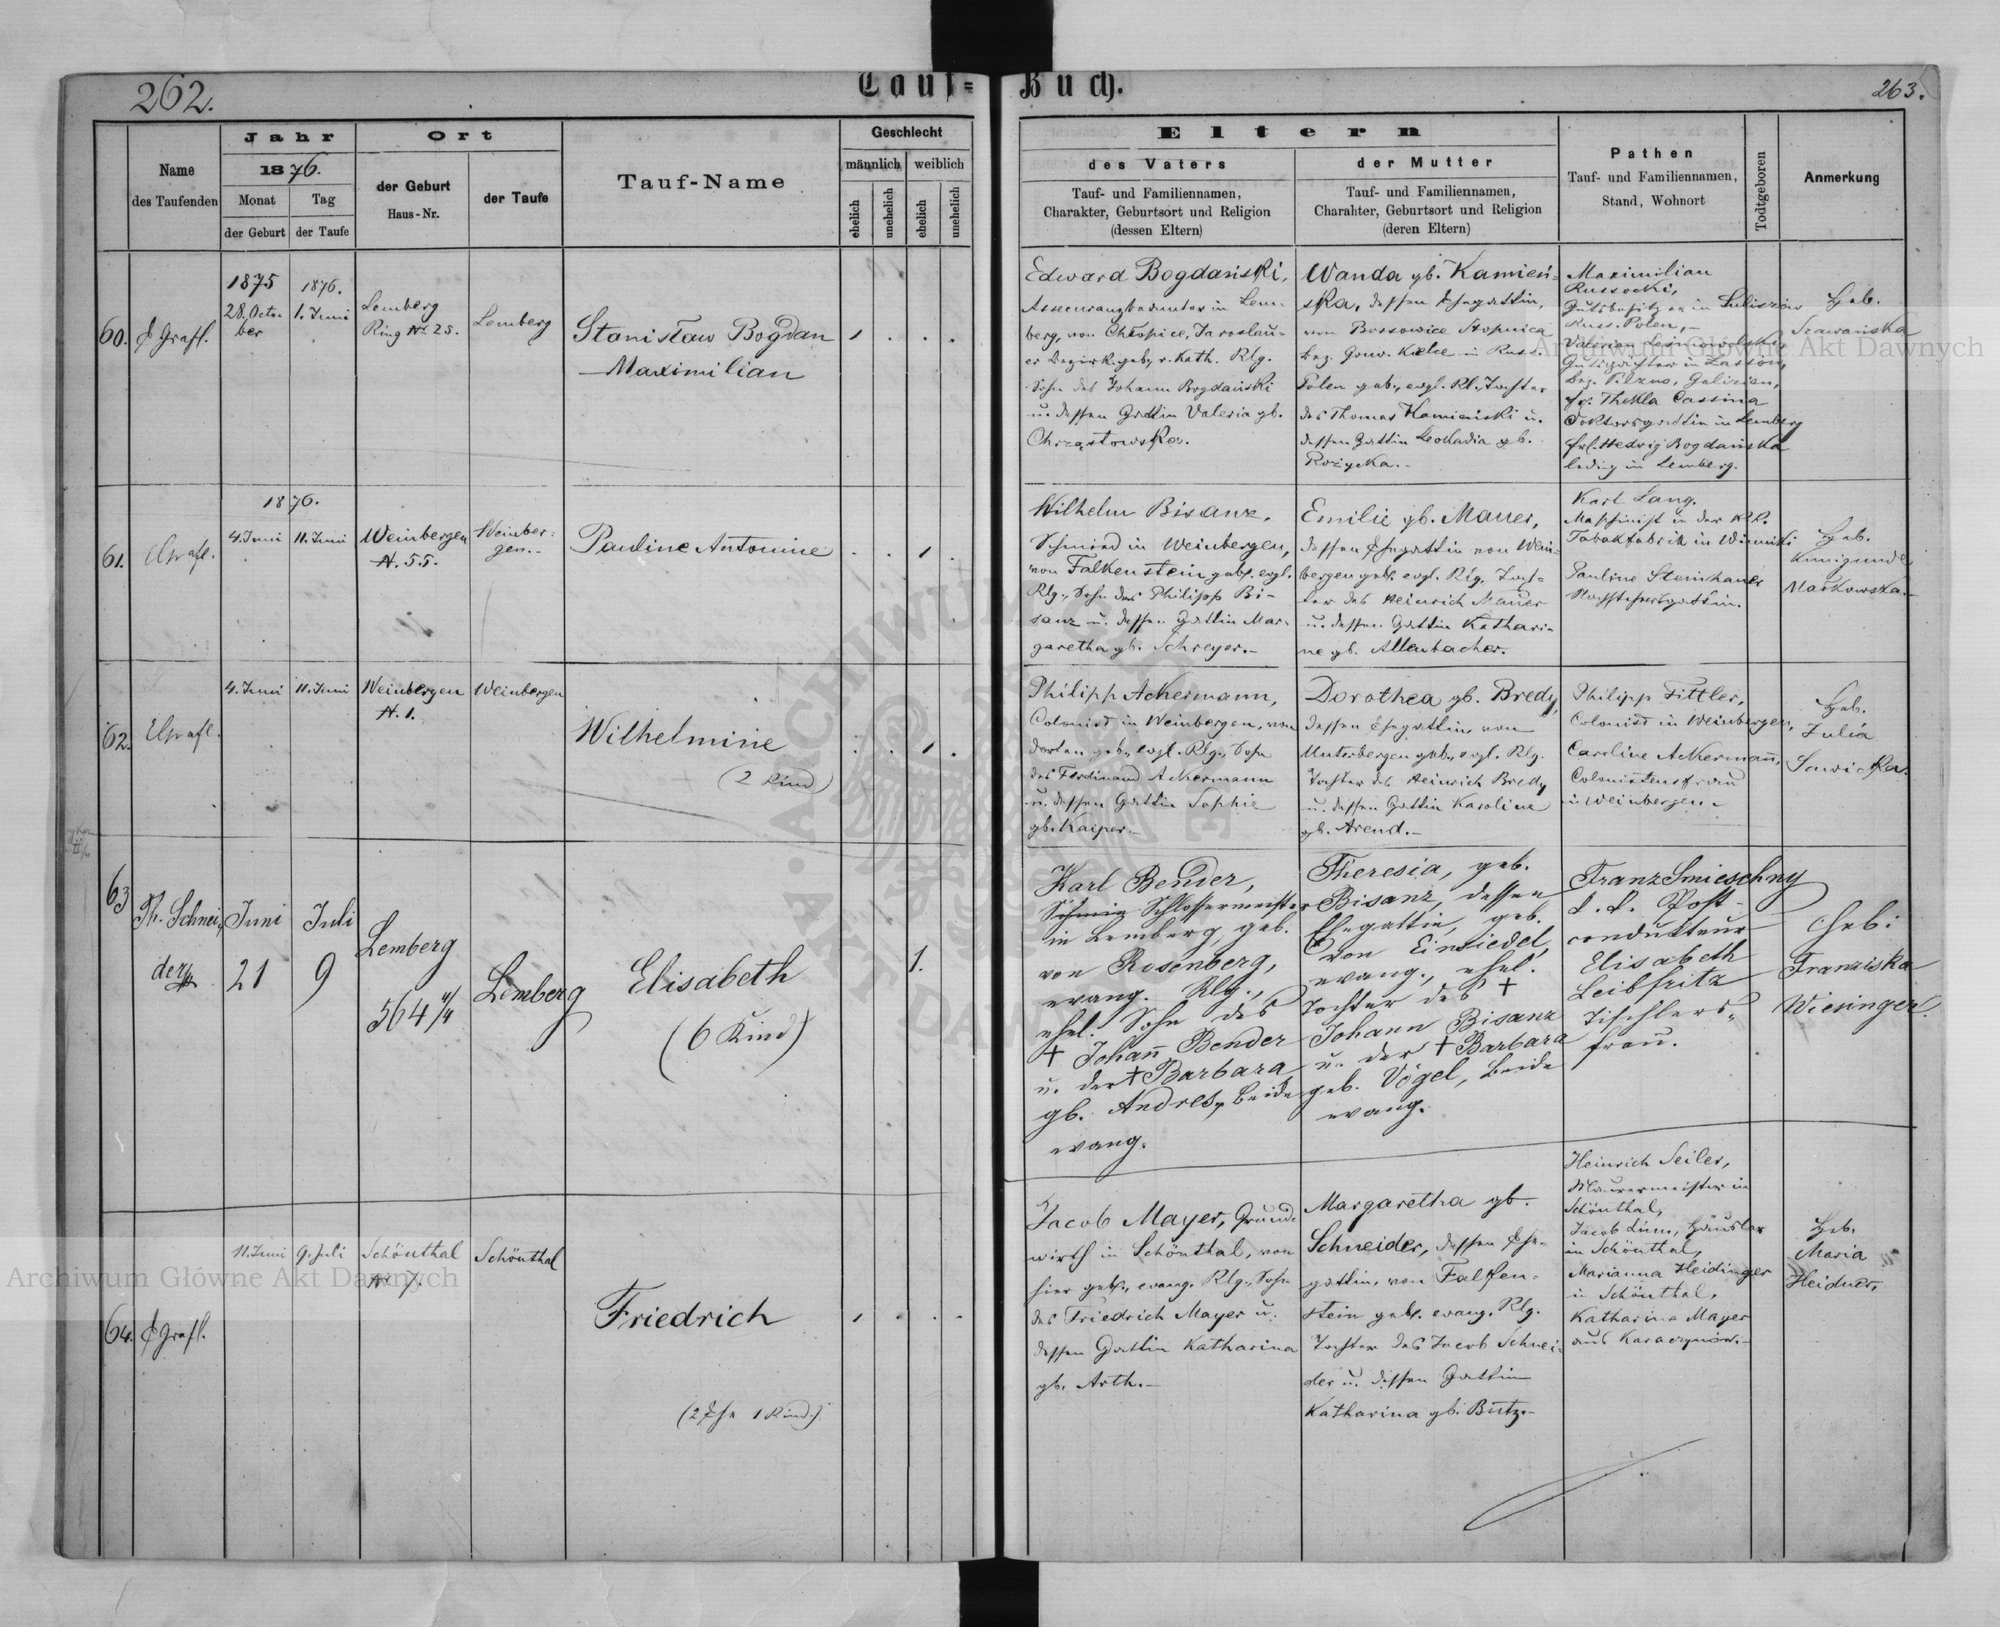 262.
Tauf=
Buch.
263.
Name
des Taufenden
Jahr
1876.
Monat
der Geburt
Tag
der Taufe
Ort
der Geburt
Haus-Nr.
der Taufe
Tauf-Name
Geschlecht
männlich
weiblich
ehelich
unehelich
ehelich
unehelich
Eltern
des Vaters
Tauf- und Familiennamen,
Charakter, Geburtsort und Religion
(dessen Eltern)
der Mutter
Tauf- und Familiennamen,
Charahter, Geburtsort und Religion
(deren Eltern)
Pathen
Tauf- und Familiennamen,
Stand, Wohnort
Todtgeboren
Anmerkung
60.
1875
28. Octo-
ber
1876.
1. Juni
Lemberg
Ring N. 25.
Lemberg
Stanisław Bogdan
Maximilian
Edward Bogdański,
Assecuranzbeamter in Lem-
berg, von Chłopice, Jaroslau-
er Bezirk geb., r. kath. Rlg.
Sohn des Johann Bogdański
u. dessen Gattin Valeria gb.
Chrząstowska.
Wanda gb. Kamień-
ska, dessen Ehegattin,
von Bossowice Stopnica
Bez. Gouv. Kielce in Russ.
Polen geb., evgl. Rl. Tochter
des Thomas Kamieński u.
dessen Gattin Leokadia gb.
Rożycka.-
Maximilian
Russocki,
Gutsbesitzer in
Russ. Polen,-
Valerian
Gutspächter in
Bez. Pilzno, Galizien,
Fr. Thekla Cassina
Doktorsgattin in Lemberg
Frl. Hedwig Bogdańska
ledig in Lemberg.
Heb.
Szawańska
61.
1876.
4. Juni
11. Juni
Weinbergen
N. 55.
Weinber-
gen.-
Pauline Antonine
Wilhelm Bisanz,
Schmied in Weinbergen,
von Falkenstein geb. evgl.
Rlg., Sohn des Philipp Bi-
sanz u. dessen Gattin Mar-
garetha gb. Schreyer.-
Emilie gb. Mauer,
dessen Ehegattin von Wein-
bergen geb. evgl. Rlg. Toch-
ter des Heinrich Mauer
u. dessen Gattin Kathari-
ne gb. Allenbacher.
Karl Lang,
Maschinist in der KK.
Tabakfabrik in Winniki
Pauline Steinhauer
Heb.
Kunigunde
Maskowska.-
62.
4. Juni
11. Juni
Weinbergen
N. 1.
Weinbergen
Wilhelmine
(2 Kind)
Philipp Ackermann,
Colonist in Weinbergen, von
dorten geb., evgl. Rlg., Sohn
des Ferdinand Ackermann
u. dessen Gattin Sophie
gb. Kaiper.-
Dorothea gb. Bredy,
dessen Ehegattin, von
Unterbergen geb., evgl. Rlg.
Tochter des Heinrich Bredy
u. dessen Gattin Karoline
gb. Arend.-
Philipp Fittler,
Colonist in Weinbergen,
Caroline Ackermann,
Colonistensfrau
in Weinbergen.-
Heb.
Julia
Sawicka.
63
Th. Schnei-
der
Juni
21
Juli
9
Lemberg
564 4/4
Lemberg
Elisabeth
(6 Kind)
1.
Karl Bender,
Schlossermeister
in Lemberg, geb.
von Rosenberg,
evang. Rlg.,
ehel. Sohn des
+ Johann Bender
u. der + Barbara
gb. Andres, beide
evang.
Theresia, geb.
Bisanz, dessen
Ehegattin, geb.
von Einsiedel,
evang., ehel.
Tochter des +
Johann Bisanz
u. der + Barbara
geb. Vögel, beide
evang.
Franz Smieschny
k. k. Post-
condukteur
Elisabeth
Leibfritz
Tischlers-
frau.
Heb:
Franziska
Wiesinger.
64.
11. Juni
9. Juli
Schönthal
N. 7.
Schönthal
Friedrich
(2 Ehe 1 Kind)
Jacob Mayer, Grund-
wirth in Schönthal, von
hier geb., evang. Rlg., Sohn
des Friedrich Mayer u.
dessen Gattin Katharina
gb. Arth.-
Margaretha gb.
Schneider, dessen Ehe-
gattin, von Falken-
stein geb. evang. Rlg.
Tochter des Jacob Schnei-
der u. dessen Gattin
Katharina gb. Butz.-
Heinrich Seiler,
Maurermeister in
Schönthal,
Jacob Lüm, Häusler
in Schönthal,
Marianna Heidinger
in Schönthal,
Katharina Mayer
aus Karaczynów.-
Heb.
Maria
Heidner,
Archiwum Główne Akt Dawnych
Archiwum Główne Akt Dawnych